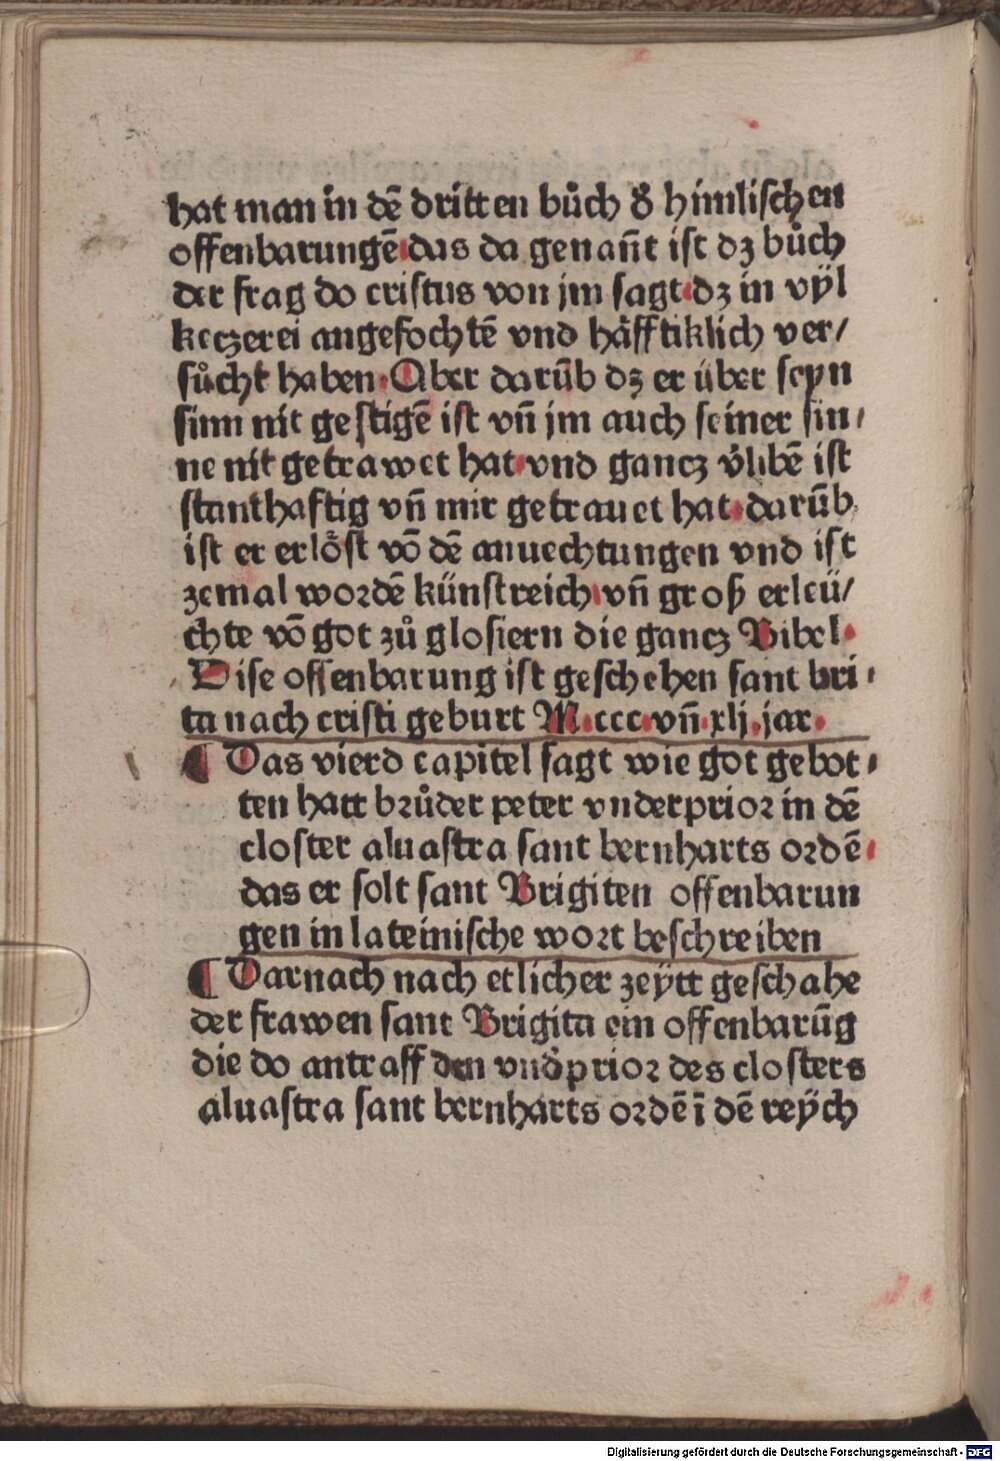 hat man in dē dritten bůch d̕ himlischen
offenbarungē·das da genañt ist dz bůch
der frag do cristus von jm sagt·dz in vÿl
keczerei angefochtē vnd häfftiklich ver/
sůcht haben·Aber darūb dz er über seyn
sinn nit gestigē ist vñ jm auch seiner sin/
ne nit getrawet hat·vnd gancz v̕libē ist
stanthaftig vñ mir getrauet hat·darūb
ist er erlöst vō dē anuechtungen vnd ist
zemal wordē künstreich·vñ groß erleü/
chte vō got zů glosiern die gancz Bibel·
Dise offenbarung ist geschehen sant bri/
ta nach cristi geburt M·ccc·vñ·xlj·jar·
¶ Das vierd capitel sagt wie got gebot/
ten hatt brůder peter vnderprior in dē
closter aluastra sant bernharts ordē·
das er solt sant Brigiten offenbarun
gen in lateinische wort beschreiben
¶ Darnach nach etlicher zeÿtt geschahe
der frawen sant Brigita ein offenbarūg
die do antraff den vnd̕prior des closters
aluastra sant bernharts ordē ī dē reÿch
Digitalisierung gefördert durch die Deutsche Forschungsgemeinschaft - DFG